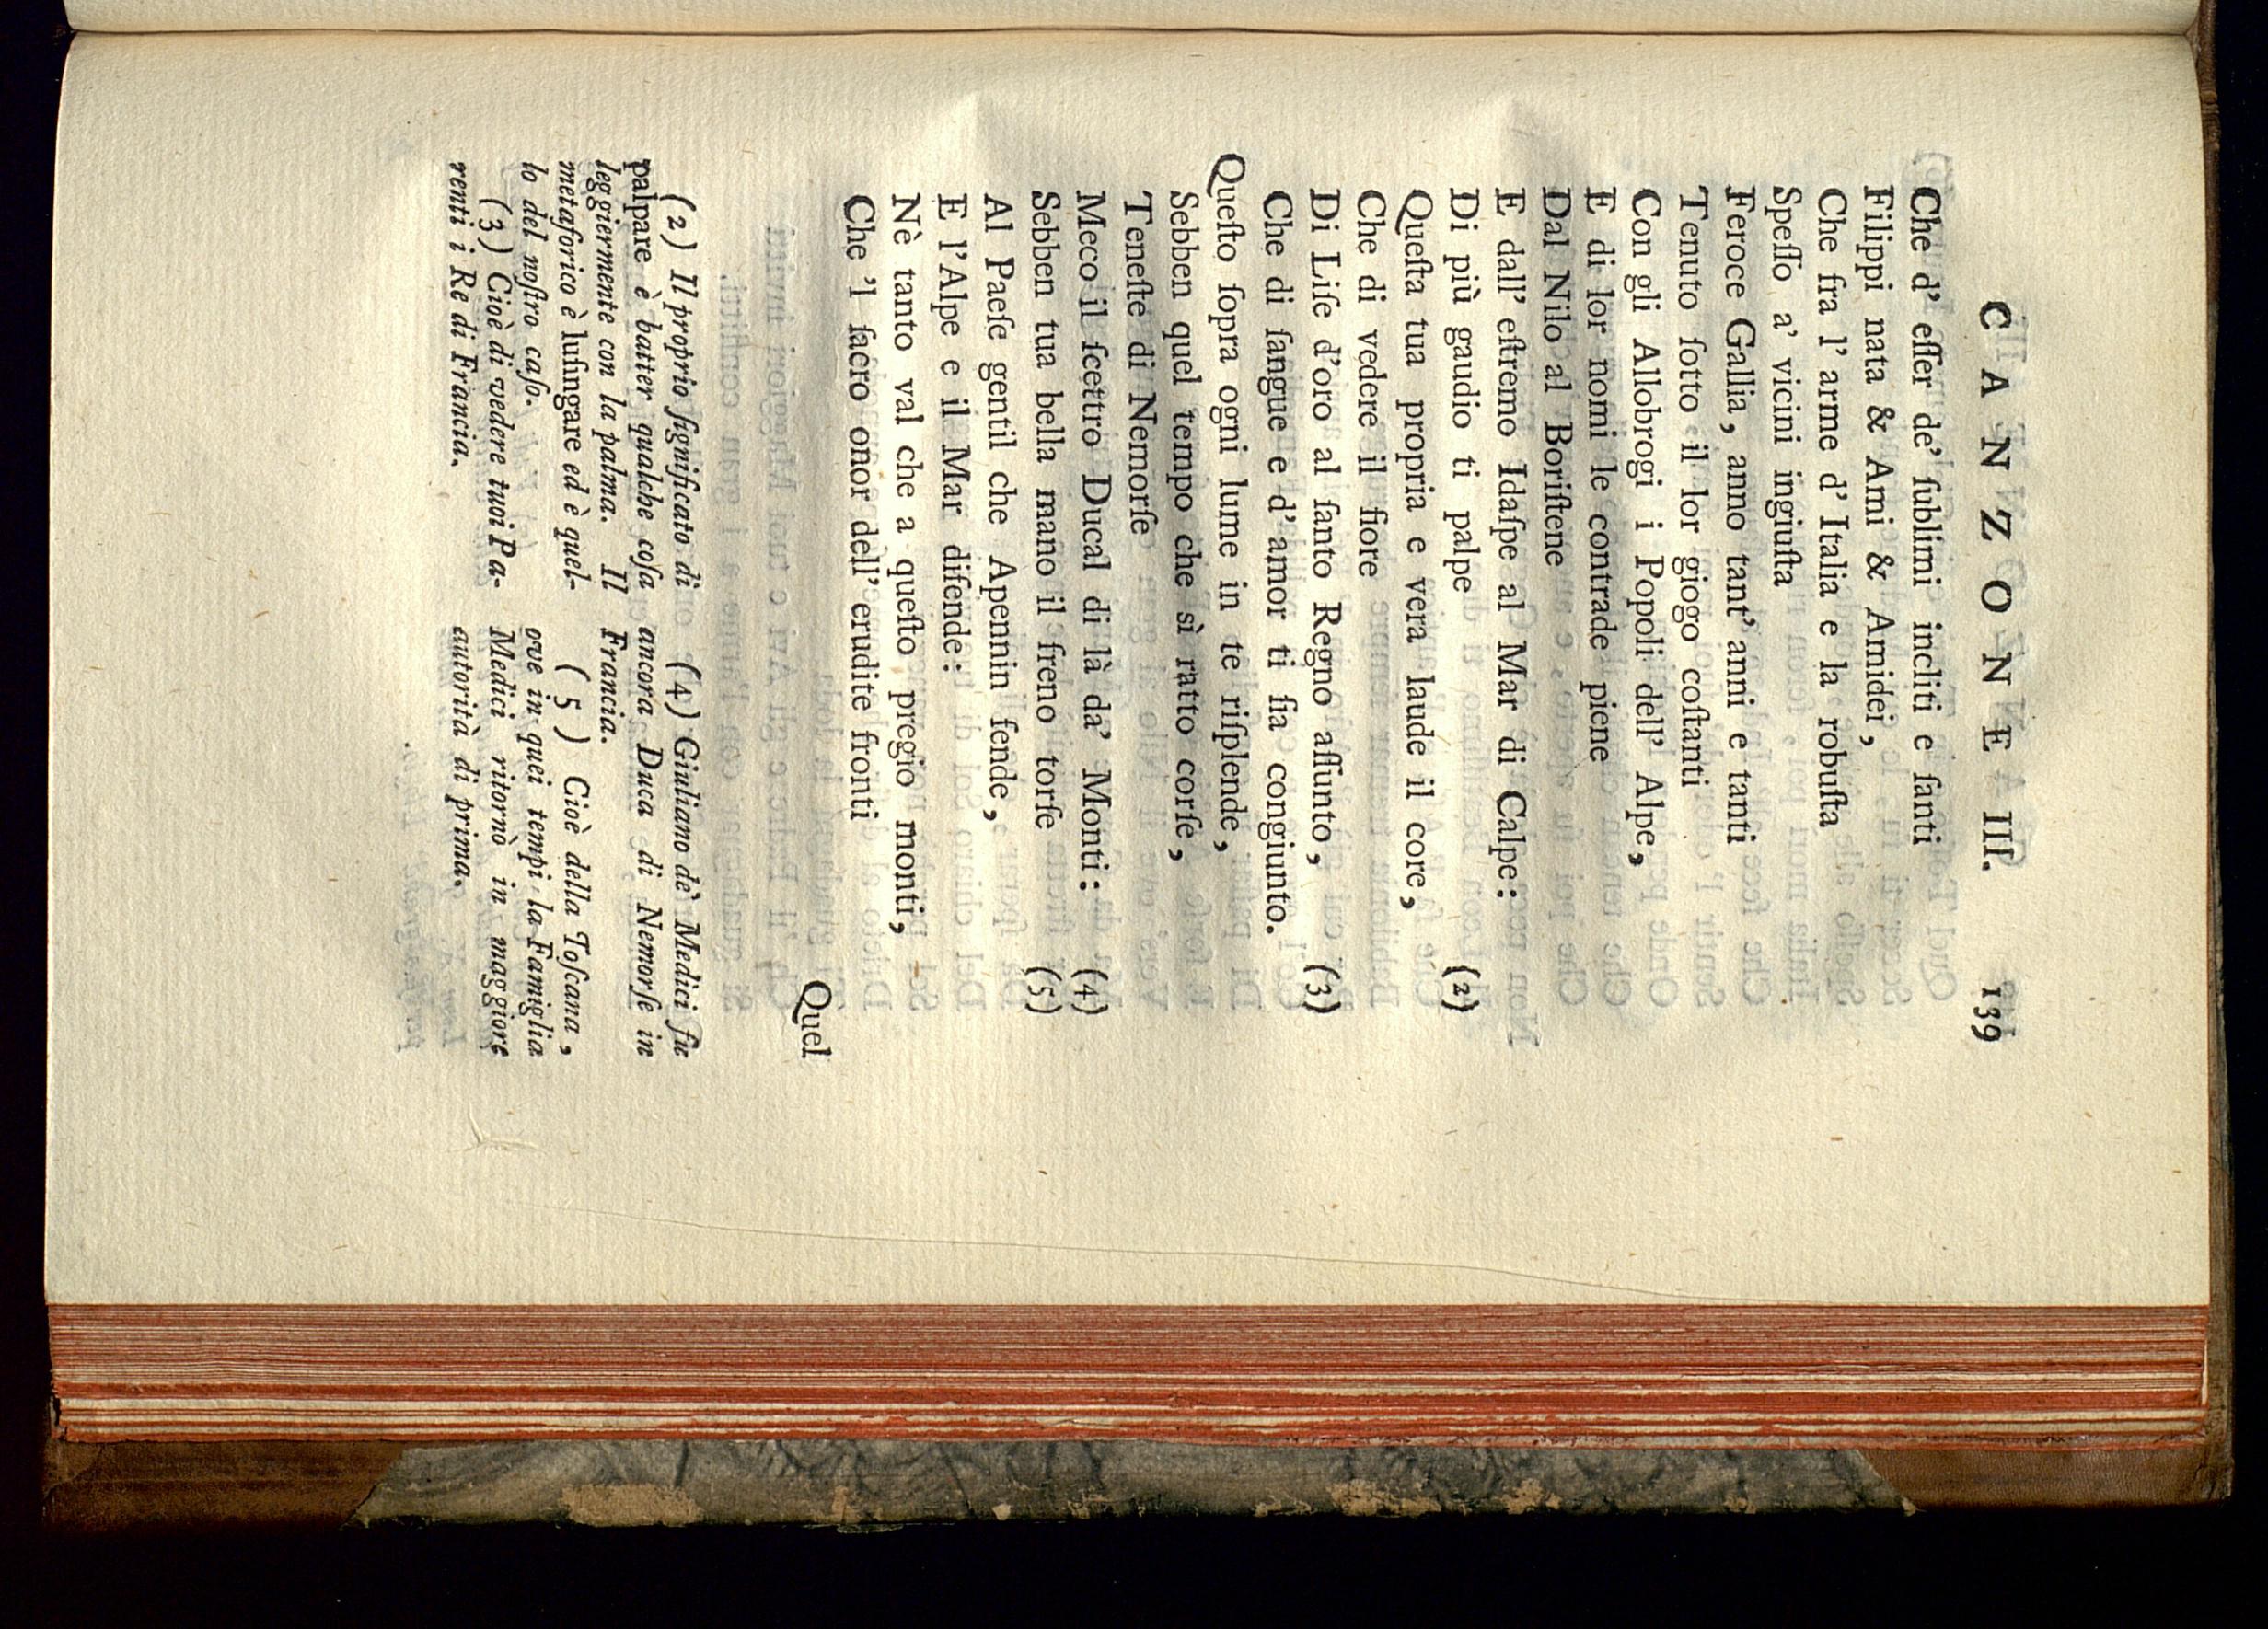 CANZONE III. 139
Che d' eſſer de' ſublimi incliti e ſanti
Filippi nata & Ami & Amidei,
Che fra l' arme d' Italia e la robuſta
Speſſo a' vicini ingiuſta
Feroce Gallia, anno tant' anni e tanti
Tenuto ſotto il lor giogo coſtanti
Con gli Allobrogi i Popoli dell' Alpe,
E di lor nomi le contrade piene
Dal Nilo al Boriſtene
E dall' eſtremo Idaſpe al Mar di Calpe:
Di più gaudio ti palpe (2)
Queſta tua propria e vera laude il core,
Che di vedere il fiore
Di Liſe d'oro al ſanto Regno aſſunto, (3)
Che di ſangue e d'amor ti ſia congiunto.
Queſto ſopra ogni lume in te riſplende,
Sebben quel tempo che sì ratto corſe,
Teneſte di Nemorſe
Meco il ſcettro Ducal di là da' Monti: (4)
Sebben tua bella mano il freno torſe (5)
Al Paeſe gentil che Apennin fende,
E l'Alpe e il Mar difende:
Nè tanto val che a queſto pregio monti,
Che 'l ſacro onor dell' erudite fronti
Quel
(2) Il proprio ſignificato di
palpare è batter qualche coſa
leggiermente con la palma. Il
metaforico è luſingare ed è quel-
lo del noſtro caſo.
(3) Cioè di vedere tuoi Pa-
renti i Re di Francia.
(4) Giuliano de' Medici fu
ancora Duca di Nemorſe in
Francia.
(5) Cioè della Toſcana,
ove in quei tempi la Famiglia
Medici ritornò in maggiore
autorità di prima.